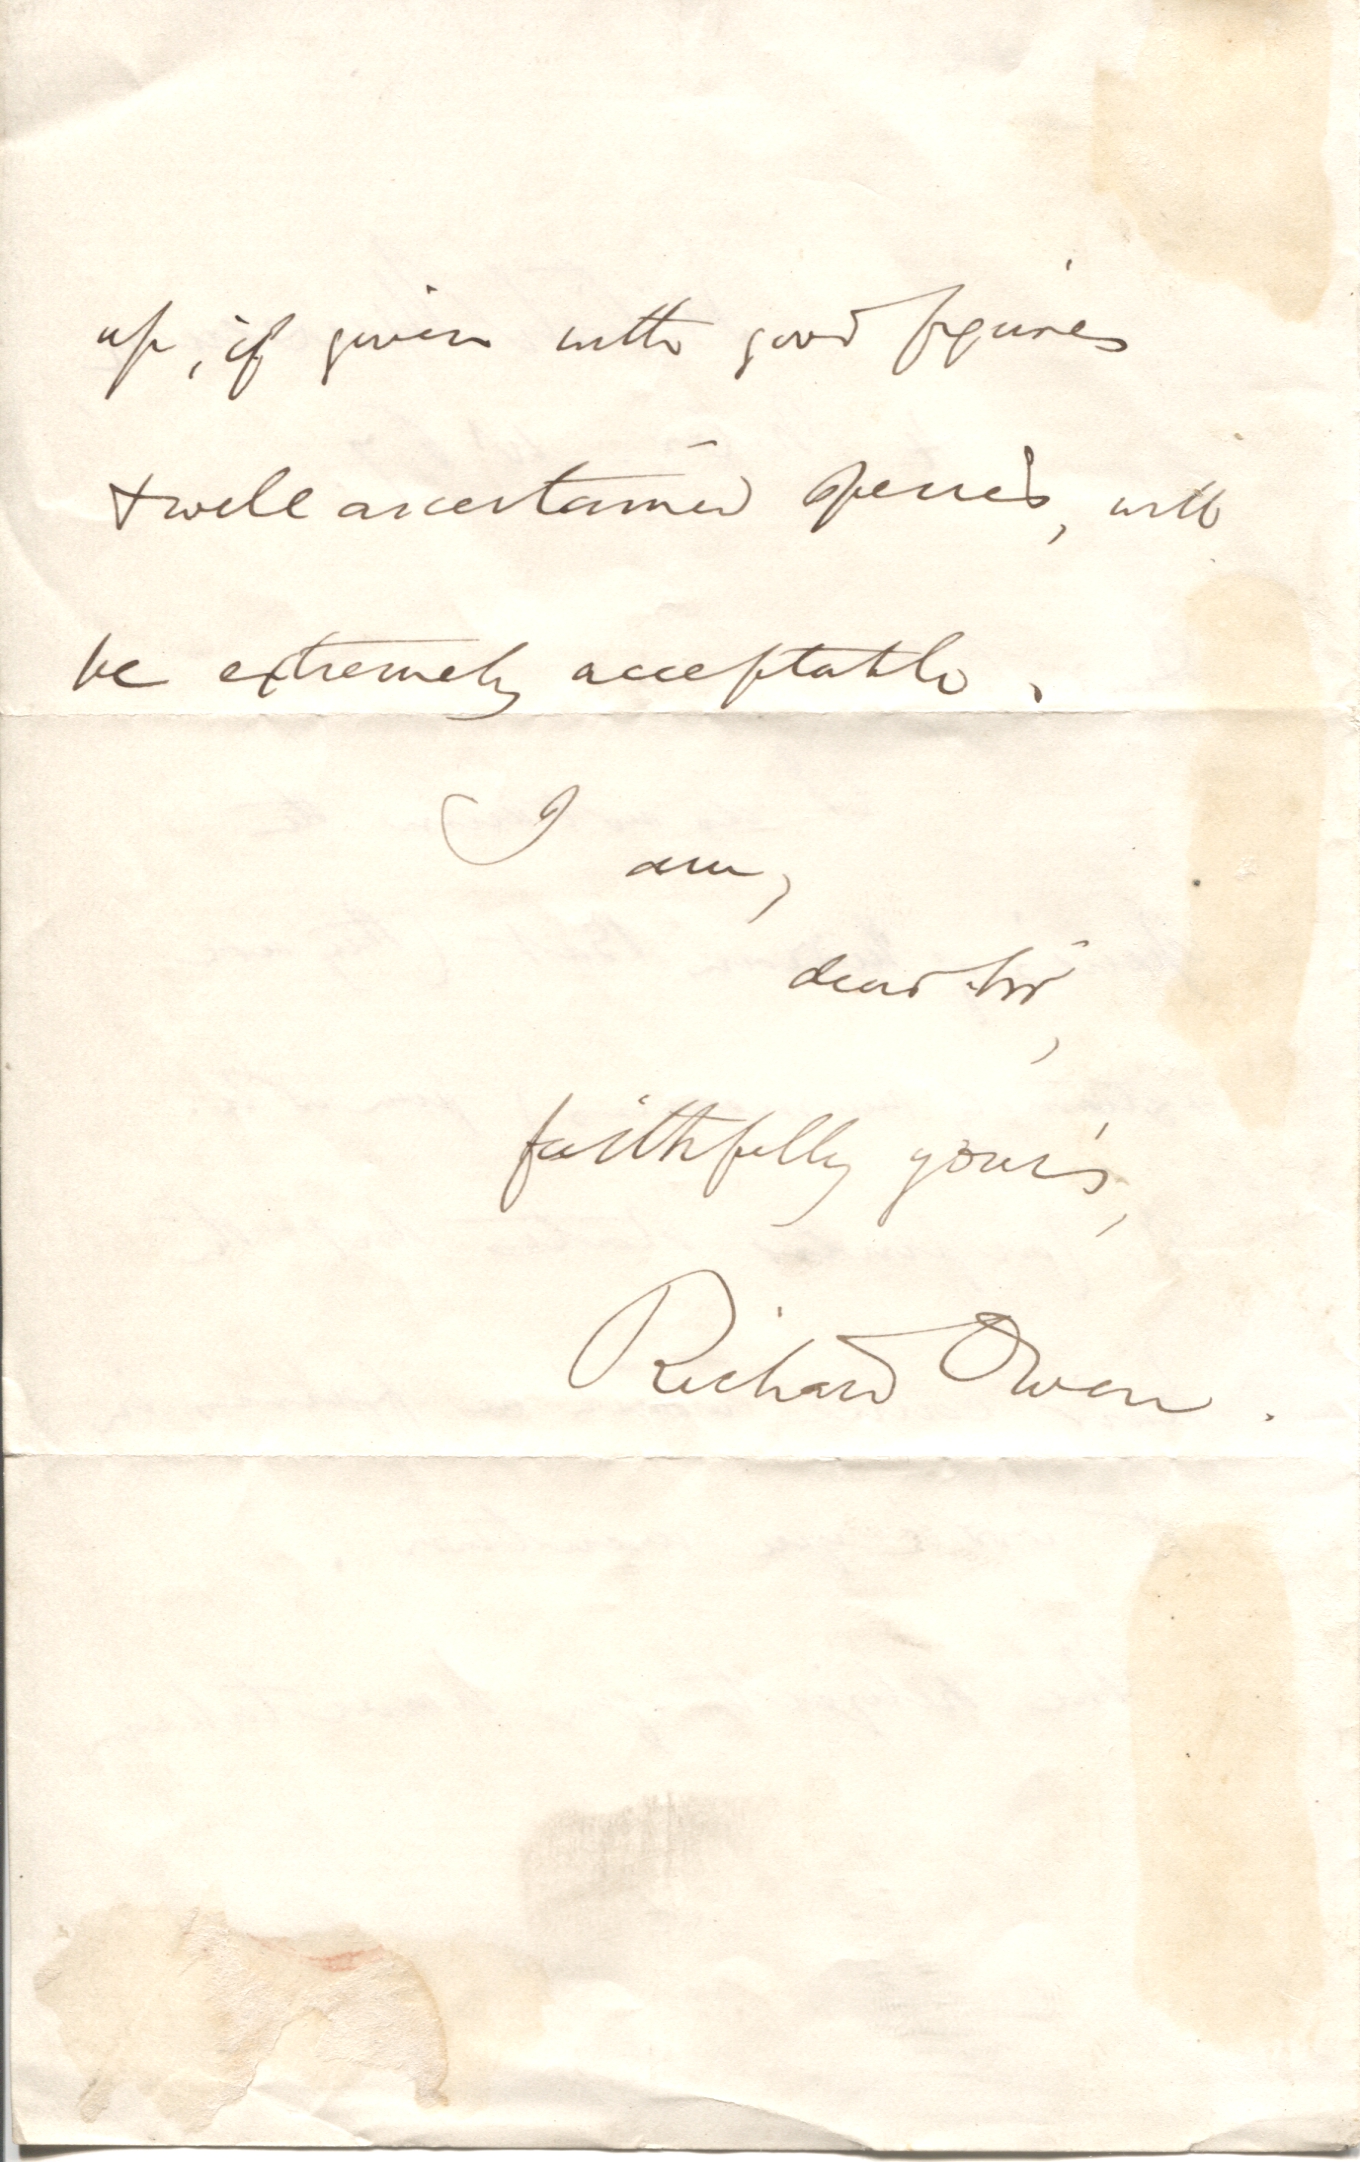 up, if given with good figures
& well ascertained species, will
be extremely acceptable.
I am,
dear Sir,
faithfully your's,
Richard Owen.